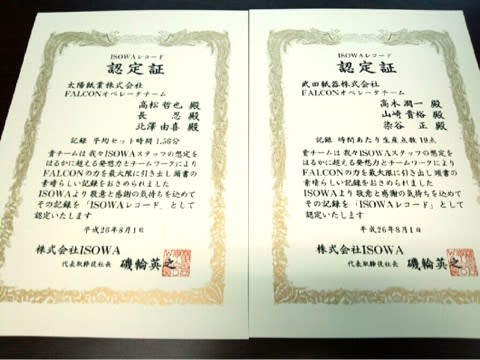 ISOWAレコード
認定証
太陽紙業株式会社
FALCONオペレータチーム
高松 哲也 殿
長 忍 殿
北澤 由喜 殿
記録 平均セット時間 1.56分
貴チームは我々ISOWAスタッフの想定を
はるかに超える発想力とチームワークにより
FALCONの力を最大限に引き出し頭書の
素晴らしい記録をおさめられました
ISOWAより敬意と感謝の気持ちを込めて
その記録を「ISOWAレコード」として
認定いたします
平成26年8月1日
株式会社ISOWA
代表取締役社長 磯輪英之
ISOWAレコード
認定証
武田紙器株式会社
FALCONオペレータチーム
高木 潤一 殿
山崎 貴裕 殿
染谷 正 殿
記録 時間あたり生産点数 19点
貴チームは我々ISOWAスタッフの想定を
はるかに超える発想力とチームワークにより
FALCONの力を最大限に引き出し頭書の
素晴らしい記録をおさめられました
ISOWAより敬意と感謝の気持ちを込めて
その記録を「ISOWAレコード」として
認定いたします
平成26年8月1日
株式会社ISOWA
代表取締役社長 磯輪英之